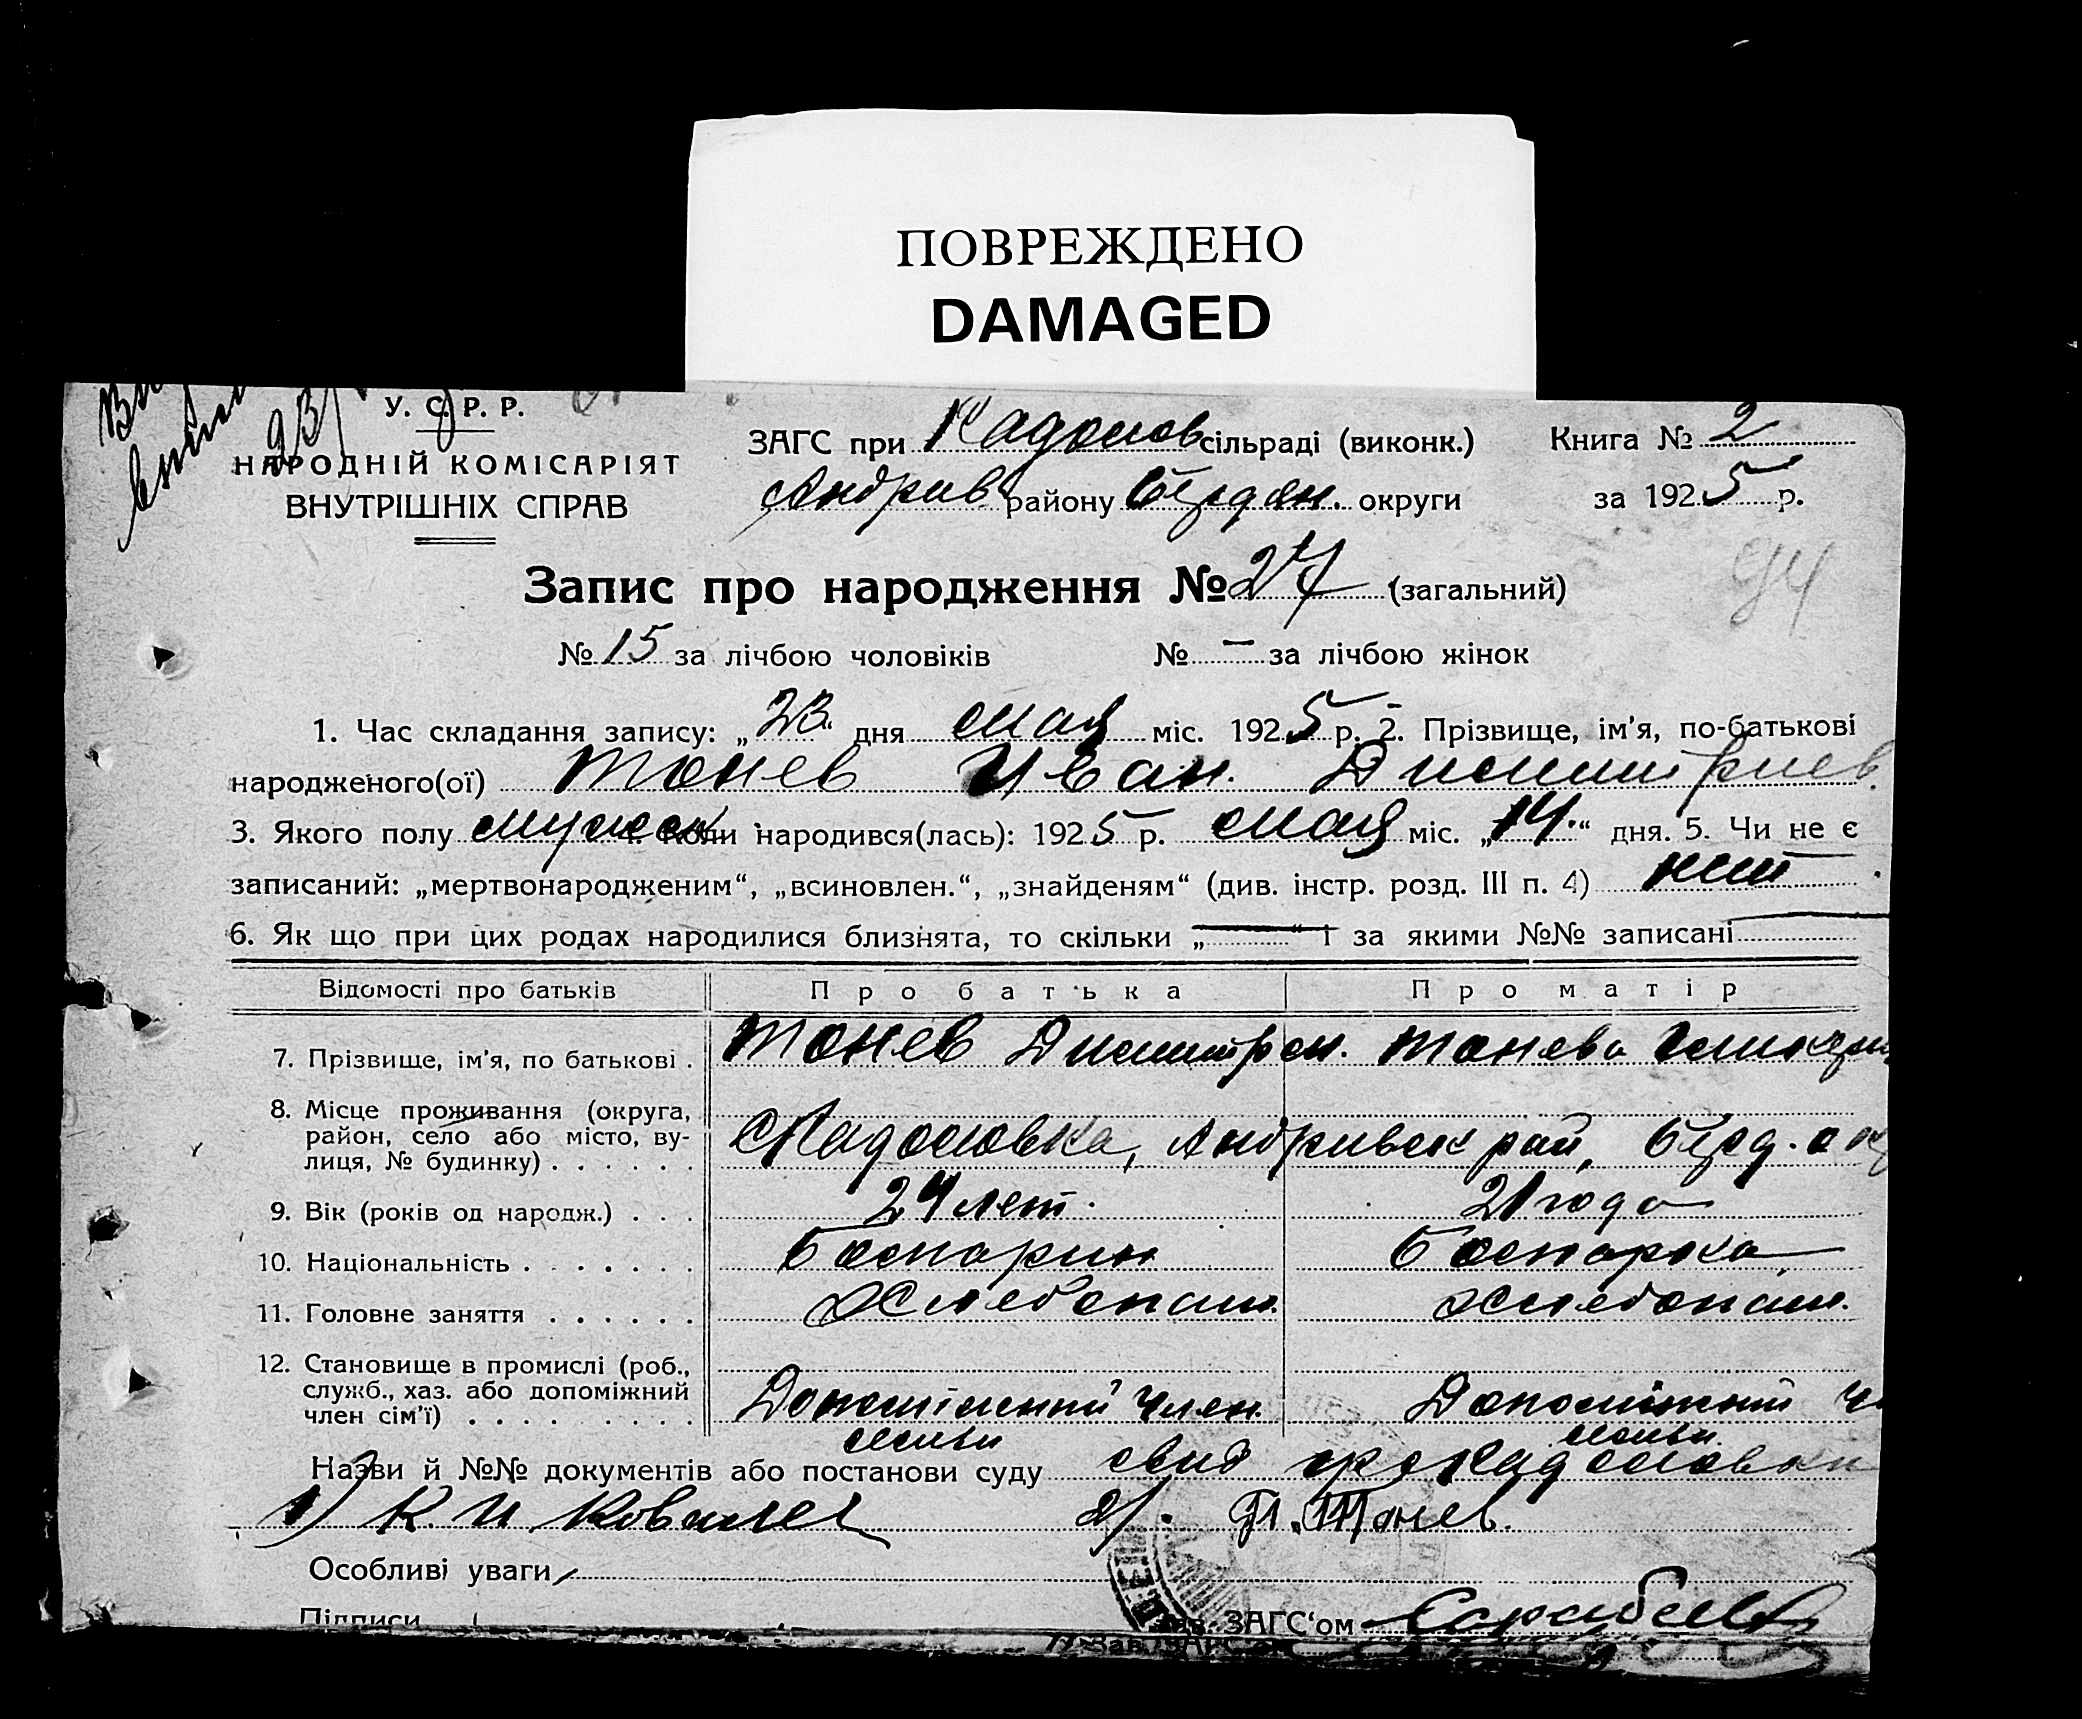 ПОВРЕЖДЕНО
DAMAGED
У. С. Р. Р.
НАРОДНІЙ КОМІСАРІЯТ
ВНУТРІШНІХ СПРАВ
ЗАГС при сільраді (виконк.)
Андрив району Бердян. округи
Книга № 2
за 1925 р.
94
Запис про народження № 27 (загальний)
№ 15 за лічбою чоловіків № — за лічбою жінок
1. Час складання запису: „23“ дня мая міс. 1925 р. 2. Прізвище, ім'я, по-батькові
народженого(ої) Тонев Иван. Димитриев.
3. Якого полу мужск 4. Коли народився(лась): 1925 р. мая міс. „14.“ дня. 5. Чи не є
записаний: „мертвонародженим“, „всиновлен.“, „знайденям“ (див. інстр. розд. III п. 4) нет
6. Як що при цих родах народилися близнята, то скільки „—“ і за якими №№ записані —
Відомості про батьків Про батька Про матір
7. Прізвище, ім'я, по батькові . Тонев Димитр Тонева
8. Місце проживання (округа,
район, село або місто, ву-
лиця, № будинку) . . . . . . Андривск рай, Берд. окр
9. Вік (років од народж.) . . . 24 лет. 21 года
10. Національність . . . . . . . Болгарин Болгарка
11. Головне заняття . . . . . . Хлебопаш. Хлебопаш.
12. Становище в промислі (роб.,
служб., хаз. або допоміжний
член сім'ї) . . . . . . . . Допоміжний Член. Допоміжний Ч
Назви й №№ документів або постанови суду свид
1) К. И. 2). П. Тонев.
Особливі уваги
Підписи
Зав. ЗАГС'ом
Зав. ЗАГС